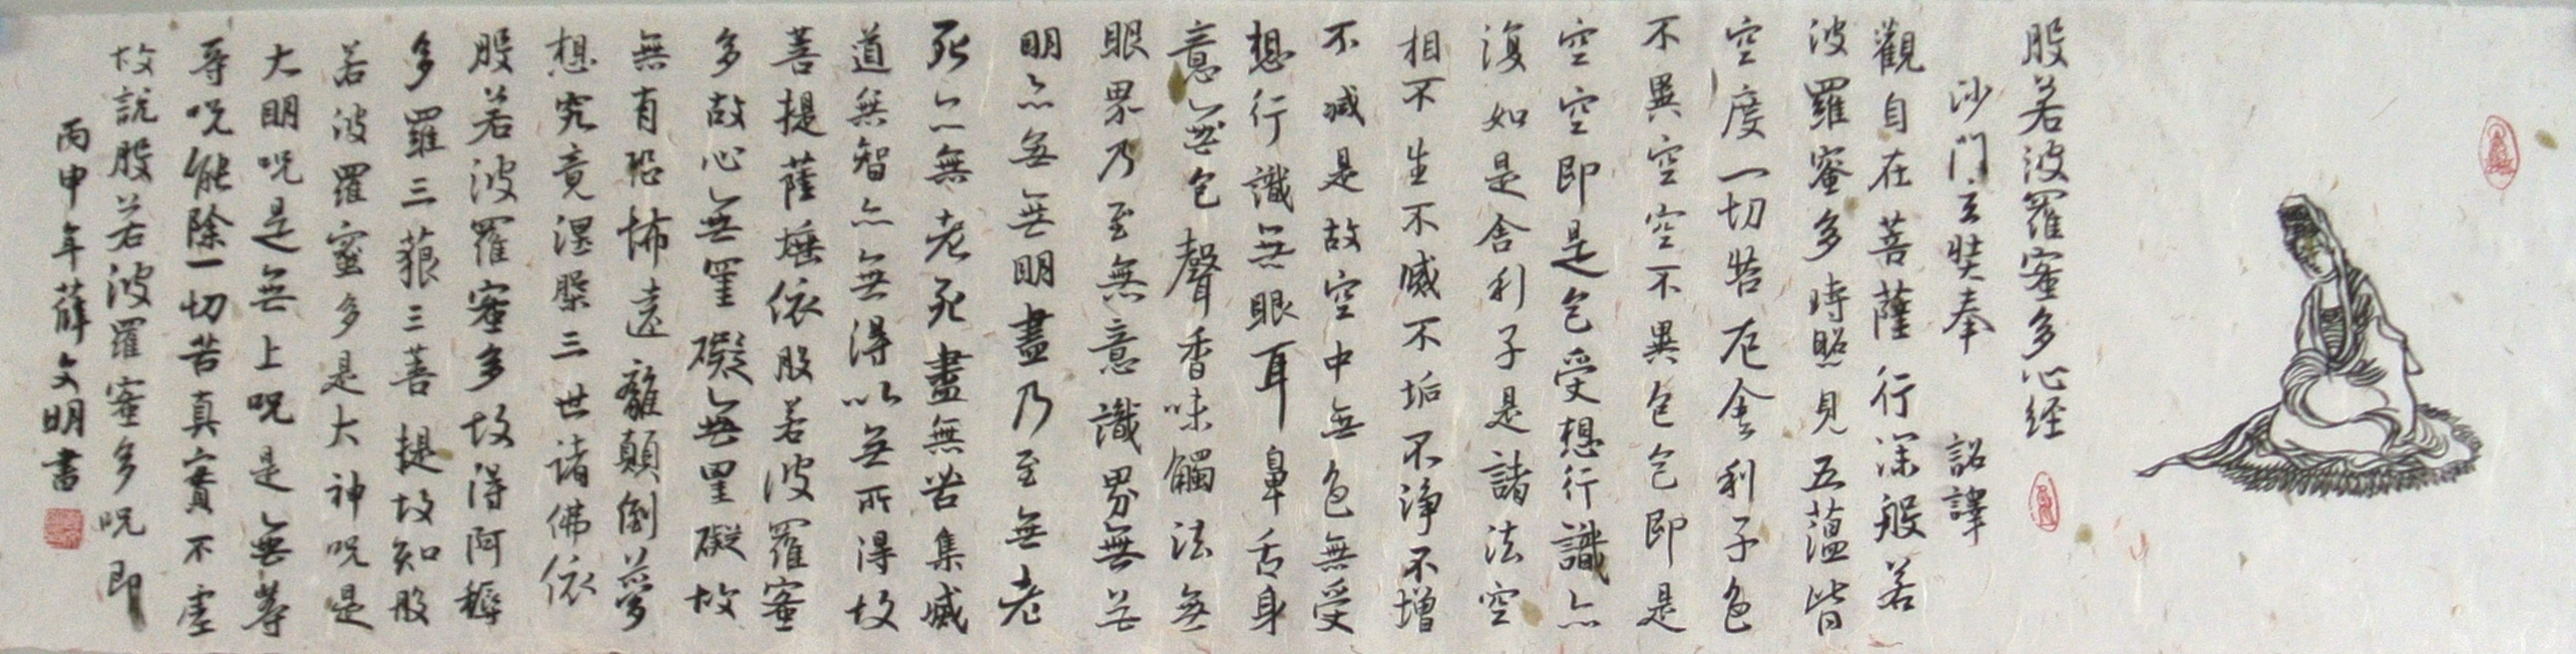 般若波羅蜜多心经
沙門玄奘奉 詔譯
觀自在菩薩行深般若
波羅蜜多時照見五蕴皆
空度一切苦厄舍利子色
不異空空不異色色即是
空空即是色受想行識亦
復如是舍利子是諸法空
相不生不滅不垢不淨不增
不減是故空中無色無受
想行識無眼耳鼻舌身
意無色聲香味觸法無
眼界乃至無意識界無無
明亦無無明盡乃至無老
死亦無老死盡無苦集滅
道無智亦無得以無所得故
菩提薩埵依般若波羅蜜
多故心無罣礙無罣礙故
無有恐怖遠離顛倒夢
想究竟涅槃三世諸佛依
般若波羅蜜多故得阿耨
多羅三藐三菩提故知般
若波羅蜜多是大神呪是
大明呪是無上呪是無等
等呪能除一切苦真實不虛
故説般若波羅蜜多呪即
丙申年薛文明書